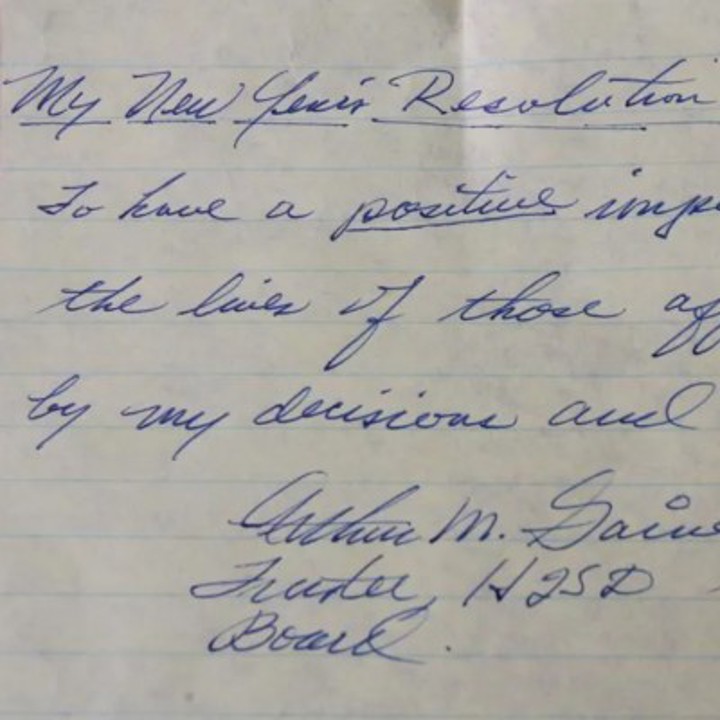 My New Year's Resolution
To have a positive imp
the lives of those aff
by my decisions and
Arthur M. Gaine
Trustee, HISD
Board.